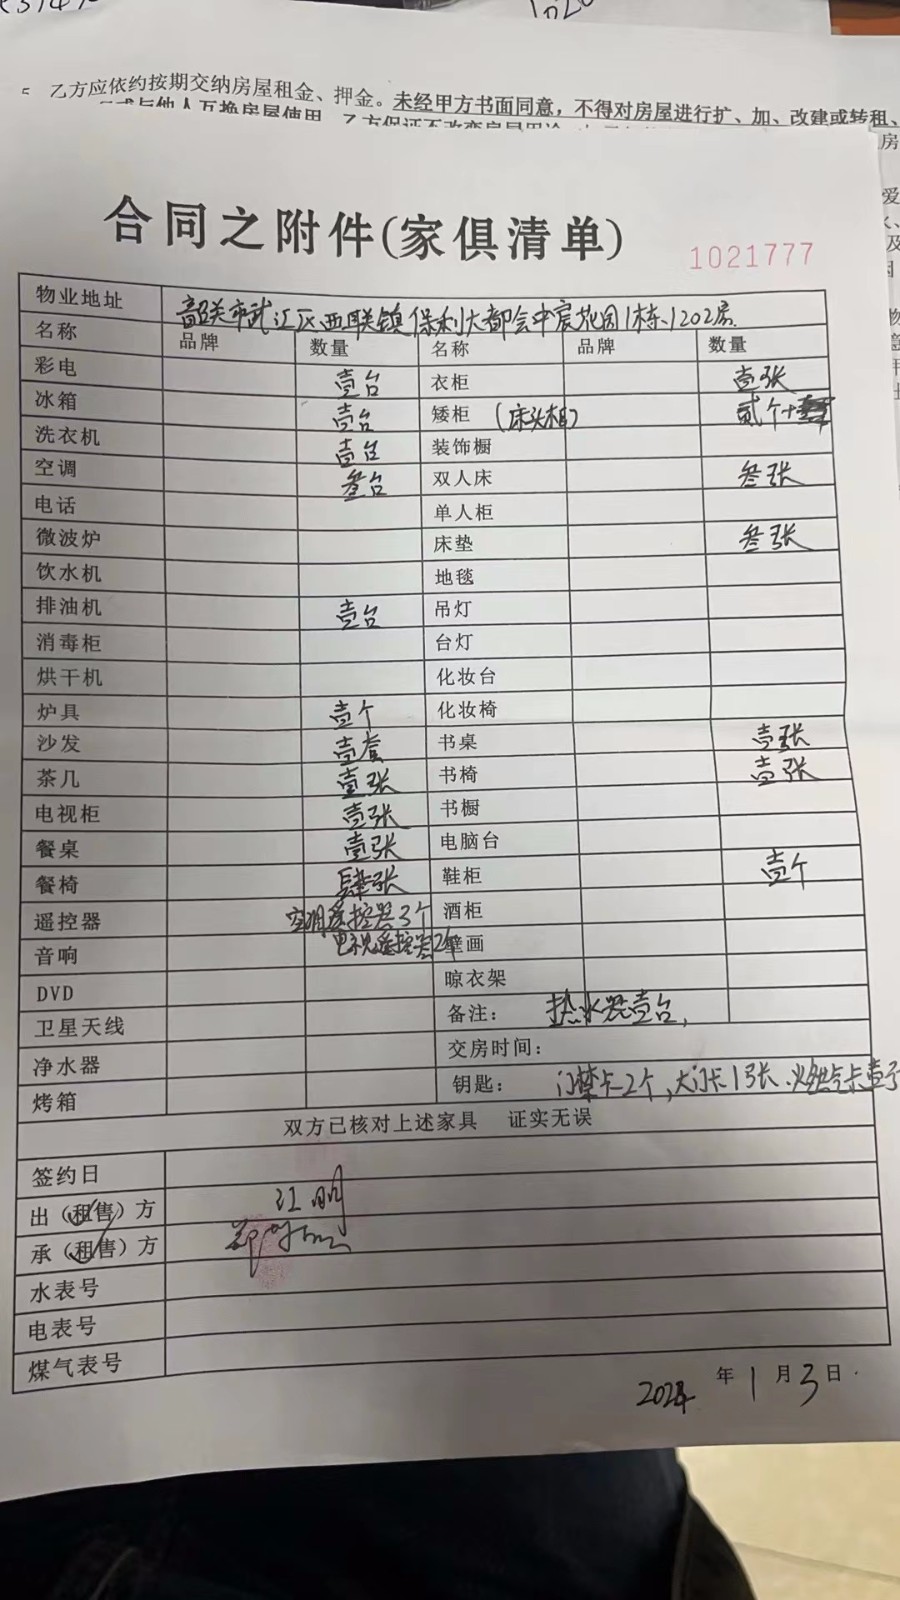 乙方应依约按期交纳房屋租金、押金。未经甲方书面同意，不得对房屋进行扩、加、改建或转租、
合同之附件(家俱清单)
1021777
物业地址 韶关市武江区西联镇保利大都会中宸花园1栋1202房.
名称 品牌 数量 名称 品牌 数量
彩电 壹台 衣柜 壹张
冰箱 壹台 矮柜 (床头柜) 贰个
洗衣机 壹台 装饰橱
空调 叁台 双人床 叁张
电话 单人柜
微波炉 床垫 叁张
饮水机 地毯
排油机 壹台 吊灯
消毒柜 台灯
烘干机 化妆台
炉具 壹个 化妆椅
沙发 壹套 书桌 壹张
茶几 壹张 书椅 壹张
电视柜 壹张 书橱
餐桌 壹张 电脑台
餐椅 肆张 鞋柜 壹个
遥控器 空调遥控器3个 酒柜
音响 电视遥控器2个 壁画
DVD 晾衣架
卫星天线 备注： 热水器壹台,
净水器 交房时间：
烤箱 钥匙： 门禁卡2个,大门卡1张、燃气卡壹
双方已核对上述家具 证实无误
签约日
出(租售)方 江明
承(租售)方
水表号
电表号
煤气表号
2024 年 1 月 3 日